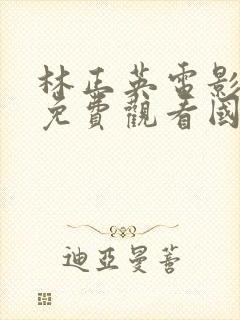 林正英電影
免費觀看國
迪亞曼菩